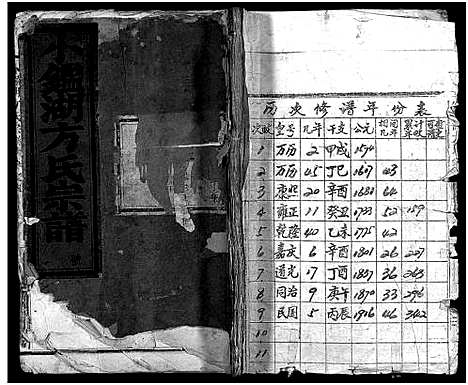 水鑑湖方氏宗譜
历次修谱年份表
次数 皇号 几年 干支 公元 相隔几年 累计年
1 万历 2 甲戌 1574
2 万历 45 丁巳 1617 43
3 康熙 20 辛酉 1681 64
4 雍正 11 癸丑 1733 52 159
5 乾隆 40 乙未 1775 42
6 嘉庆 6 辛酉 1801 26 227
7 道光 17 丁酉 1837 36 263
8 同治 9 庚午 1870 33 296
9 民国 5 丙辰 1916 46 342
10
11